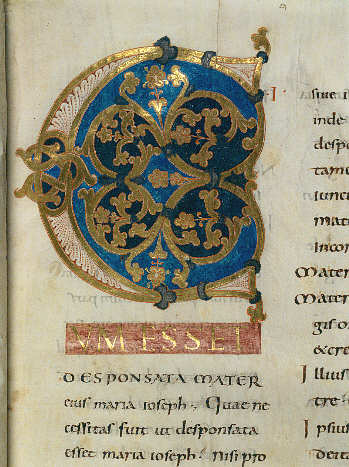 C
UM ESSET
DESPONSATA MATER
eius maria ioseph; Quae ne
cessitas fuit ut desponsata
esset maria ioseph; Nisi pro
siue i
inde
desp
tam
iunc
mat
Incor
Mater
Mater
gis o
& cre
Illius
tre
Ipsiu
deita